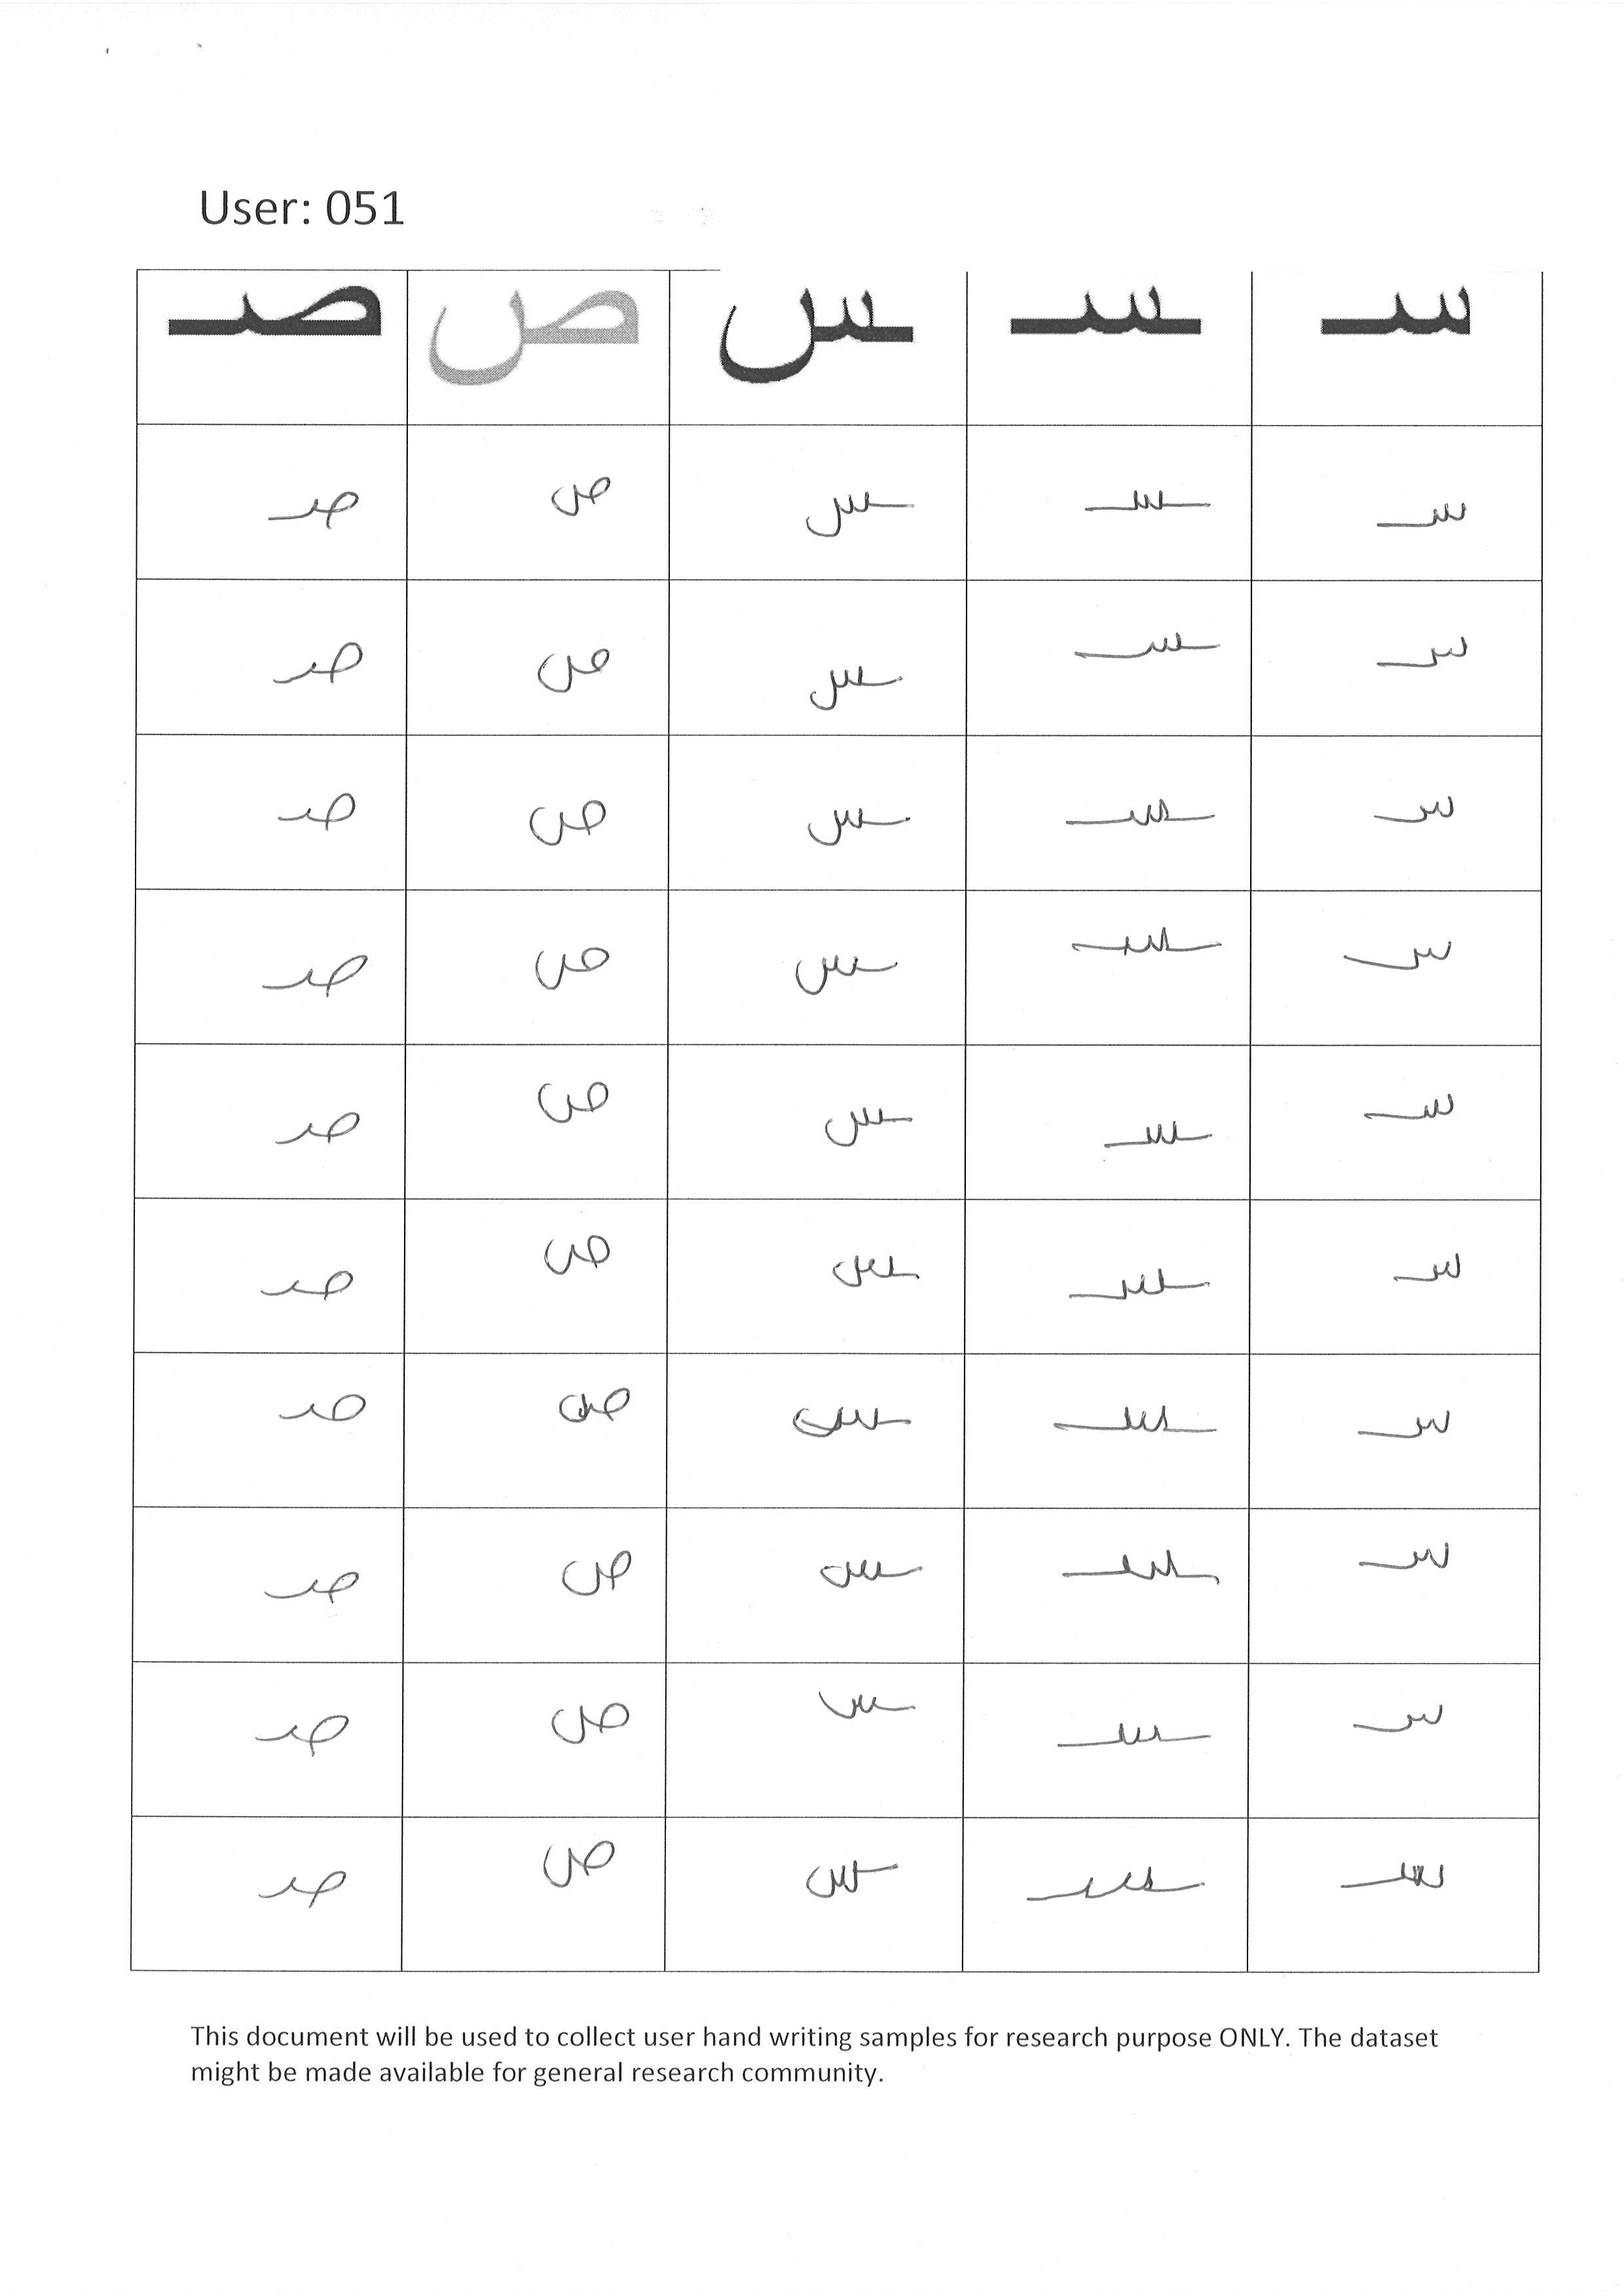 User: 051
سـ ـسـ ـس ص صـ
سـ ـسـ ـس ص صـ
سـ ـسـ ـس ص صـ
سـ ـسـ ـس ص صـ
سـ ـسـ ـس ص صـ
سـ ـسـ ـس ص صـ
سـ ـسـ ـس ص صـ
سـ ـسـ ـس ص صـ
سـ ـسـ ـس ص صـ
سـ ـسـ ـس ص صـ
سـ ـسـ ـس ص صـ
This document will be used to collect user hand writing samples for research purpose ONLY. The dataset
might be made available for general research community.